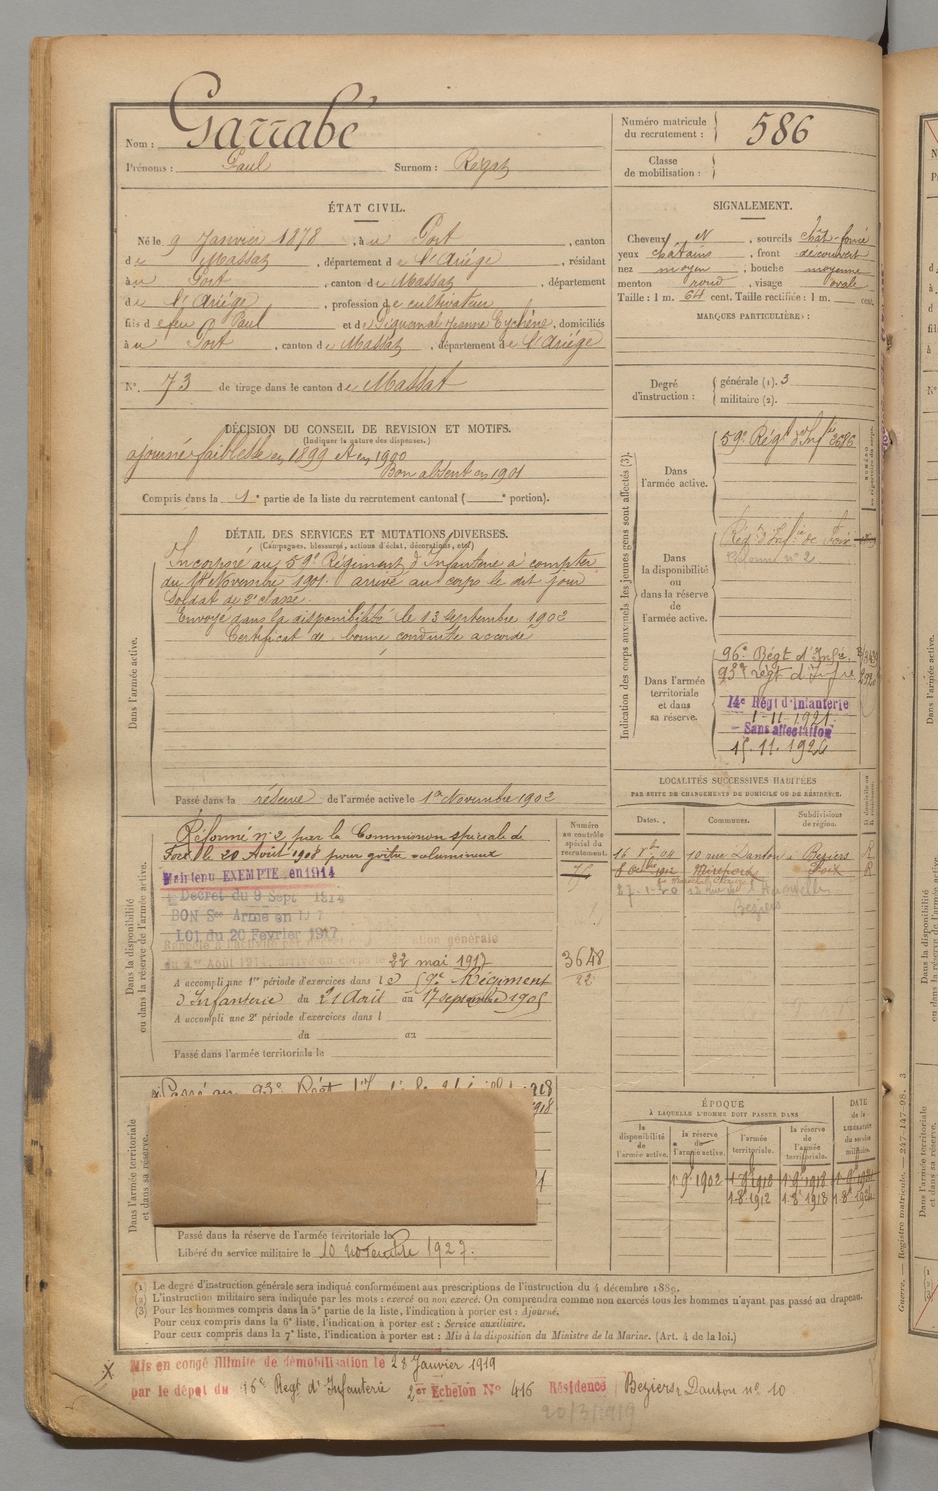 Nom : Garrabé
Prénoms : Paul Surnom : Regat
Numéro matricule du recrutement : 586
Classe de mobilisation :
ÉTAT CIVIL.
Né le 9 Janvier 1878, à u Port, canton
d e Massat, département d e l'Ariège, résidant
à u Port, canton d e Massat, département
d e l'Ariège, profession d e cultivateur
fils d e feu Paul et d e Piquemal Jeanne Eychène, domiciliés
à u Port, canton d e Massat, département d e l'Ariège
N°. 73 de tirage dans le canton d e Massat
SIGNALEMENT.
Cheveux N, sourcils chât-foncé
yeux chatains, front découvert
nez moyen, bouche moyenne
menton rond, visage ovale
Taille : 1 m. 64 cent. Taille rectifiée : 1 m. cent.
MARQUES PARTICULIÈRES :
Degré d'instruction : générale (1). 3
militaire (2).
DÉCISION DU CONSEIL DE REVISION ET MOTIFS.
(Indiquer la nature des dispenses.)
ajourné faiblesse en 1899 et en 1900
Bon absent en 1901
Compris dans la 1e partie de la liste du recrutement cantonal ( e portion).
DÉTAIL DES SERVICES ET MUTATIONS DIVERSES.
(Campagnes, blessures, actions d'éclat, décorations, etc.)
Dans l'armée active.
Incorporé au 59e Régiment d'Infanterie à compter
du Novembre 1901. arrivé au corps le dit jour
Soldat de 2e classe.
Envoyé dans la disponibilité le 13 septembre 1902
Certificat de bonne conduite accordé
Passé dans la réserve de l'armée active le 1er Novembre 1902
Indication des corps auxquels les jeunes gens sont affectés (3).
Dans l'armée active.
59e Régt d'Infie 3686
Dans la disponibilité ou dans la réserve de l'armée active.
Rég. d'Infie de Foix
n° 2
Dans l'armée territoriale et dans sa réserve.
96e Régt d'Infie.
93e régt d'Infie
14e Régt d'Infanterie
1-11-1921
Sans affectation
15.11.1926
LOCALITÉS SUCCESSIVES HABITÉES
PAR SUITE DE CHANGEMENTS DE DOMICILE OU DE RÉSIDENCE.
Dates. Communes. Subdivisions de région.
10 rue Danton à Beziers R
1912 Mirepoix Foix R
27-1-20
Beziers
Dans la disponibilité ou dans la réserve de l'armée active.
Numéro au contrôle spécial du recrutement.
Réformé n° 2 par la Commission spéciale de
Foix le 20 Août 1908 pour goitre volumineux
Maintenu EXEMPTÉ en 1914
Décret du 9 Sept 1914
BON Sce Armé en 1917
LOI du 20 Fevrier 1917
22 mai 1917
3648
22
A accompli une 1re période d'exercices dans l e 59e Régiment
d'Infanterie du 21 Août au 17 septembre 1905
A accompli une 2e période d'exercices dans l
du au
Passé dans l'armée territoriale le
Dans l'armée territoriale et dans sa réserve.
Passé au 93e Régt 1918
1918
Passé dans la réserve de l'armée territoriale le
Libéré du service militaire le 10 novembre 1927.
ÉPOQUE
À LAQUELLE L'HOMME DOIT PASSER DANS
DATE de la LIBÉRATION du service militaire.
la disponibilité de l'armée active. la réserve de l'armée active. l'armée territoriale. la réserve de l'armée territoriale.
1902
1-8-1912
(1) Le degré d'instruction générale sera indiqué conformément aux prescriptions de l'instruction du 4 décembre 1889.
(2) L'instruction militaire sera indiquée par les mots : exercé ou non exercé. On comprendra comme non exercés tous les hommes n'ayant pas passé au drapeau.
(3) Pour les hommes compris dans la 5e partie de la liste, l'indication à porter est : Ajourné.
Pour ceux compris dans la 6e liste, l'indication à porter est : Service auxiliaire.
Pour ceux compris dans la 7e liste, l'indication à porter est : Mis à la disposition du Ministre de la Marine. (Art. 4 de la loi.)
Mis en congé illimité de démobilisation le 28 Janvier 1919
par le dépot du 16e Regt d'Infanterie 2e Echelon N° 416 Résidence Beziers r. Danton n° 10
20/3/1919
Guerre. — Registre matricule. — 247-147-98. 3